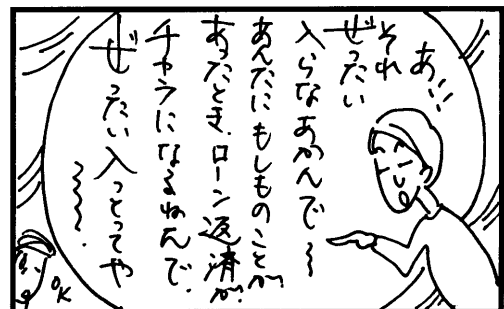 あ!!
それ
ぜったい
入らなあかんで〜
あんたにもしものことが
あったとき、ローン返済が、
チャラになるねんで、
ぜったい入っとってや
〜〜〜.
OK